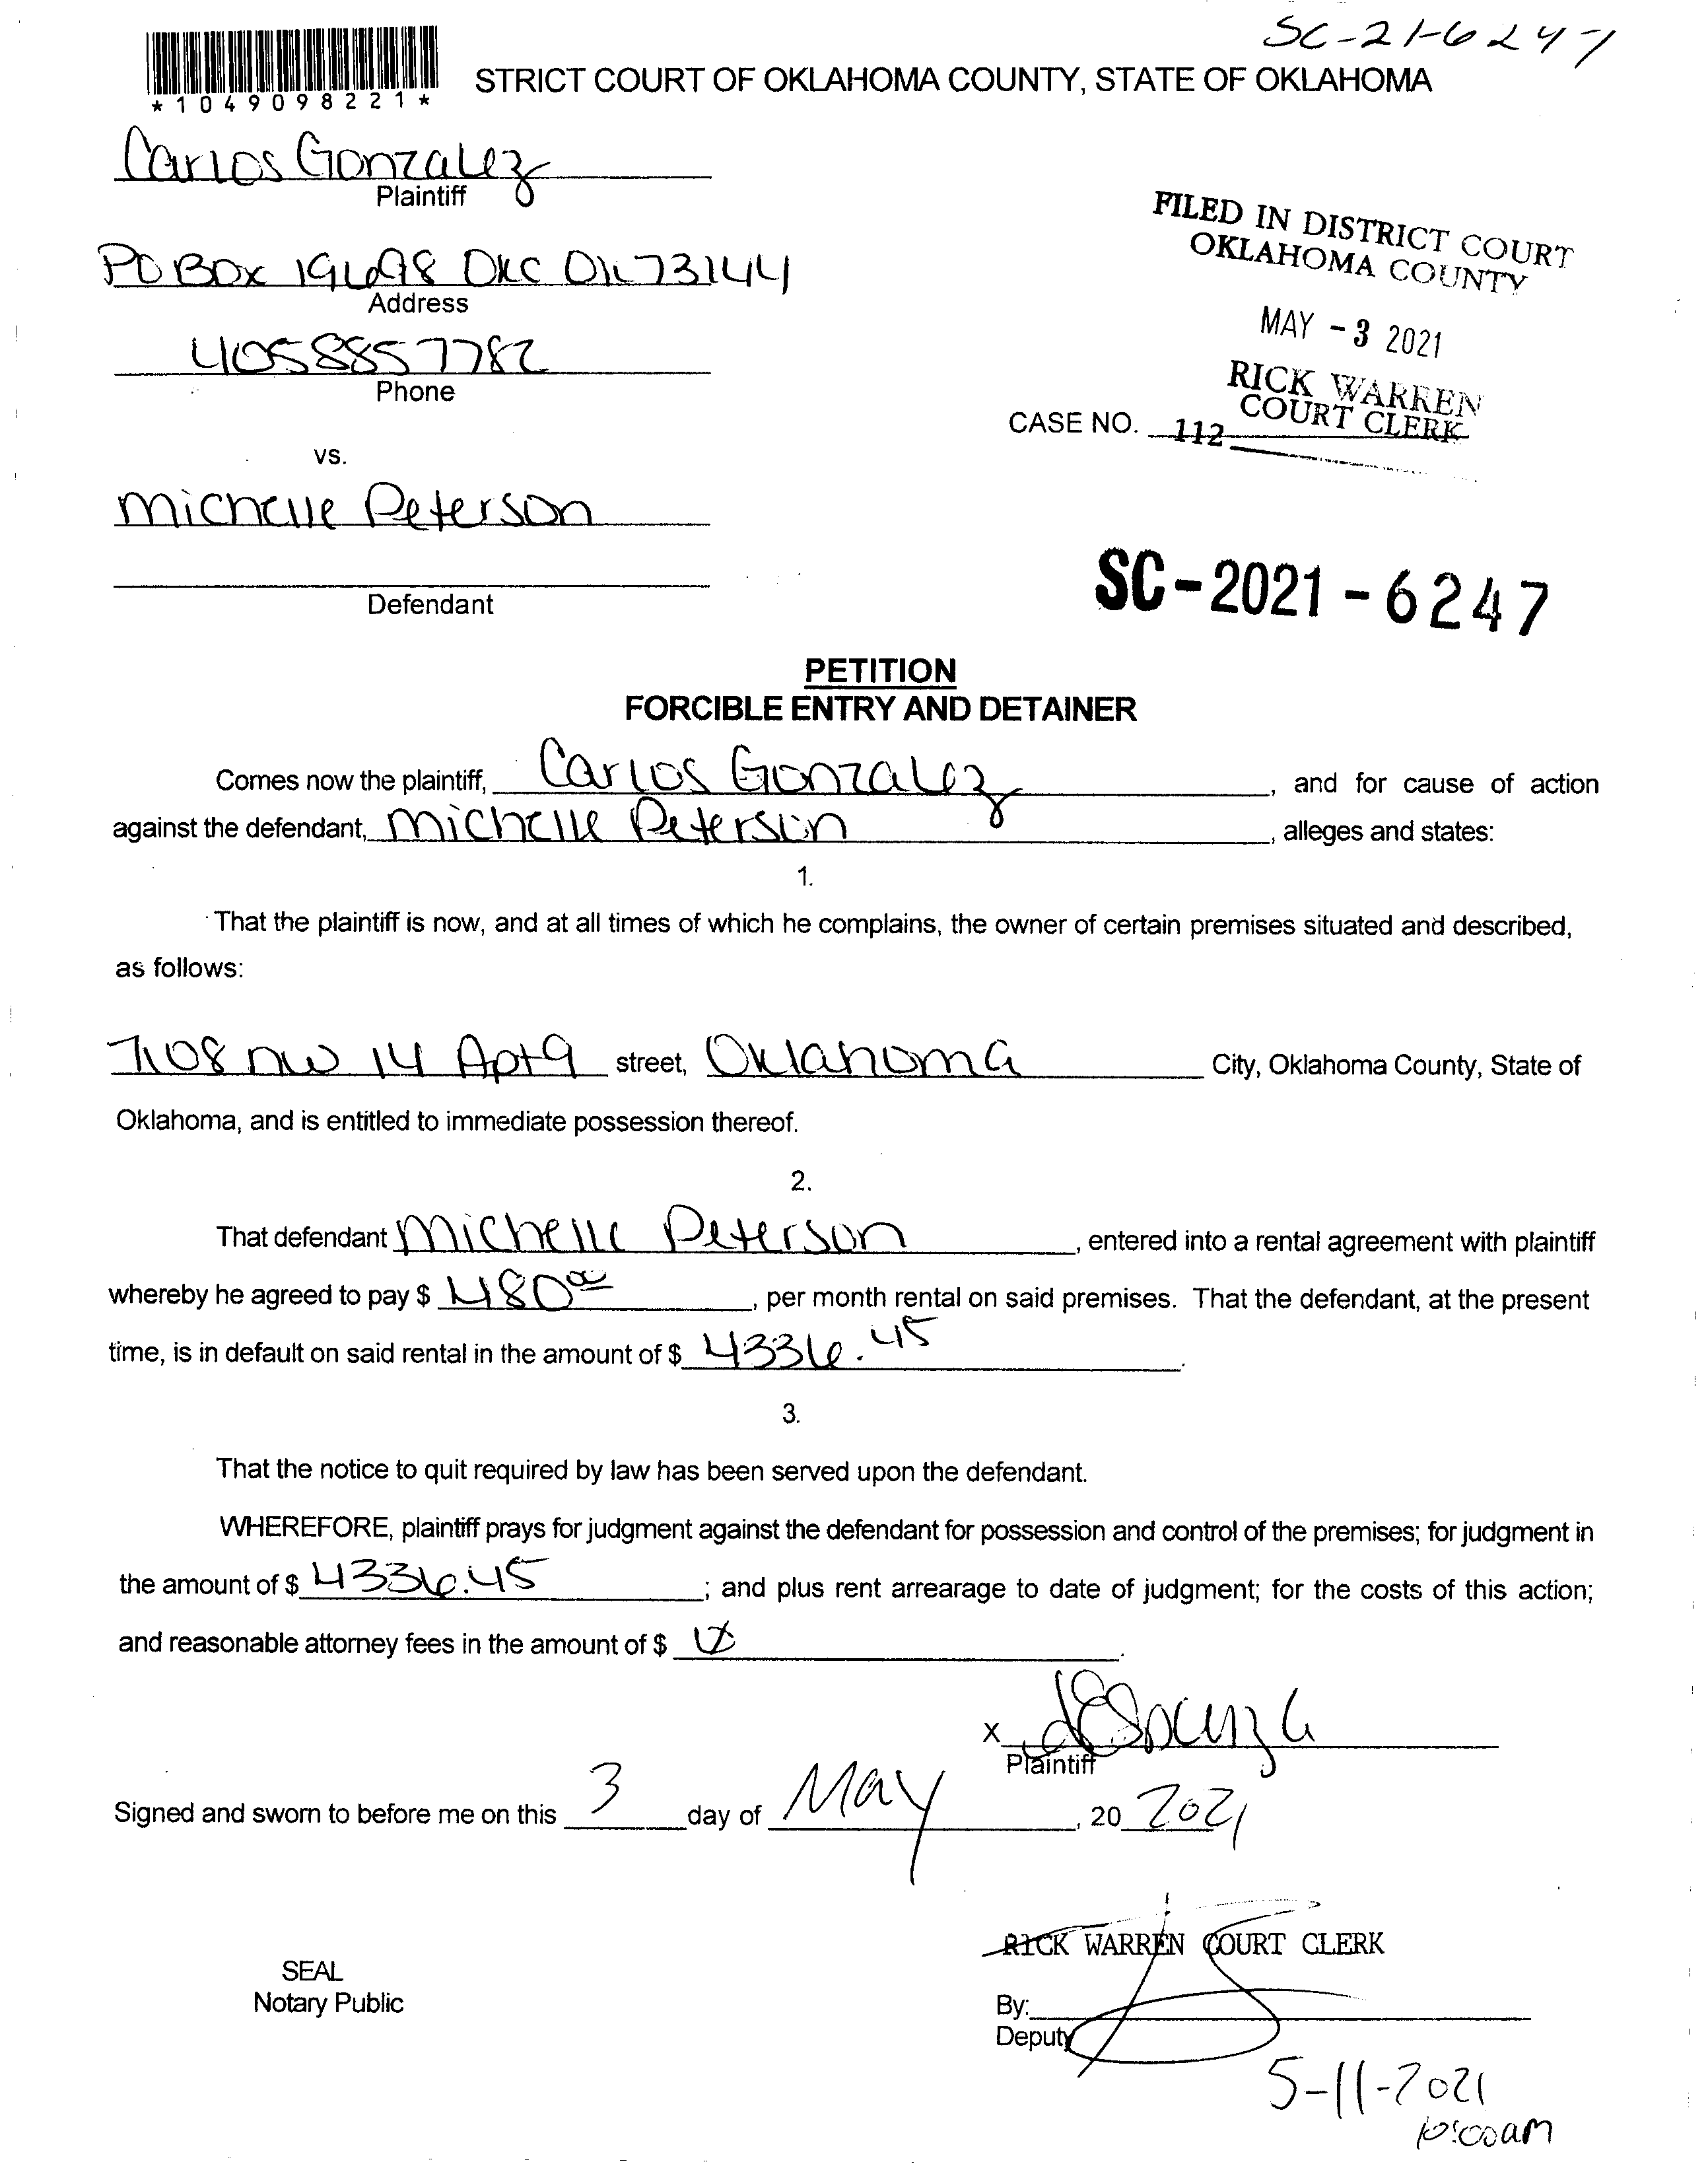 SC-21-6247
*1049098221*
STRICT COURT OF OKLAHOMA COUNTY, STATE OF OKLAHOMA
Carlos Gonzalez
Plaintiff
PO Box 19698 OKC OK 73144
Address
4058857782
Phone
FILED IN DISTRICT COURT
OKLAHOMA COUNTY
MAY - 3 2021
RICK WARREN
COURT CLERK
CASE NO. 112
vs.
Michelle Peterson
Defendant
SC-2021-6247
PETITION
FORCIBLE ENTRY AND DETAINER
Comes now the plaintiff, Carlos Gonzalez, and for cause of action
against the defendant, Michelle Peterson, alleges and states:
1.
That the plaintiff is now, and at all times of which he complains, the owner of certain premises situated and described,
as follows:
7108 NW 14 Apt 9 street, Oklahoma City, Oklahoma County, State of
Oklahoma, and is entitled to immediate possession thereof.
2.
That defendant Michelle Peterson, entered into a rental agreement with plaintiff
whereby he agreed to pay $ 480.00, per month rental on said premises. That the defendant, at the present
time, is in default on said rental in the amount of $ 4336.45.
3.
That the notice to quit required by law has been served upon the defendant.
WHEREFORE, plaintiff prays for judgment against the defendant for possession and control of the premises; for judgment in
the amount of $ 4336.45; and plus rent arrearage to date of judgment; for the costs of this action;
and reasonable attorney fees in the amount of $
X
Plaintiff
Signed and sworn to before me on this 3 day of May, 20 2021
RICK WARREN COURT CLERK
SEAL
Notary Public
By:
Deputy
5-11-2021
10:00am